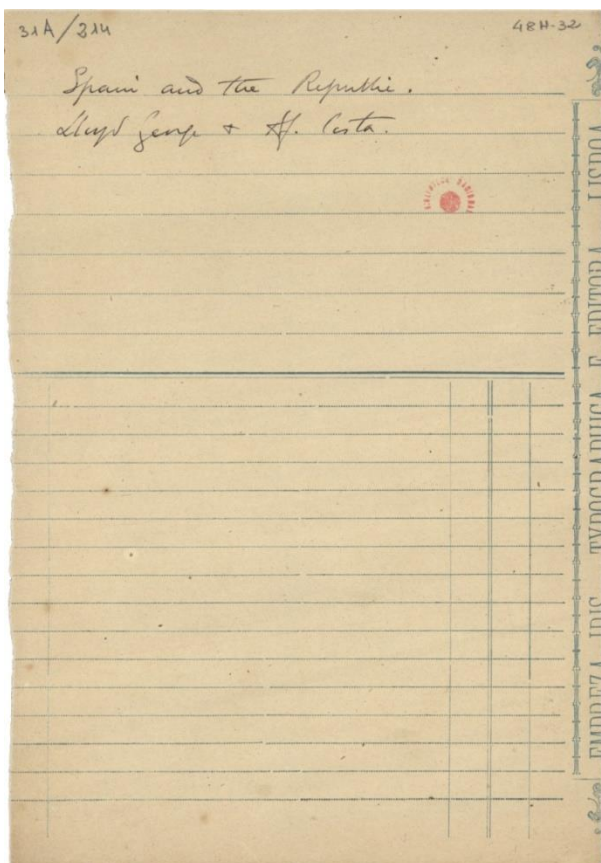 31A/214
48H-32
Spain and the Republic.
Lloyd George + Af. Costa.
BIBLIOTECA NACIONAL
EMPREZA IBIS — TYPOGRAPHICA E EDITORA — LISBOA